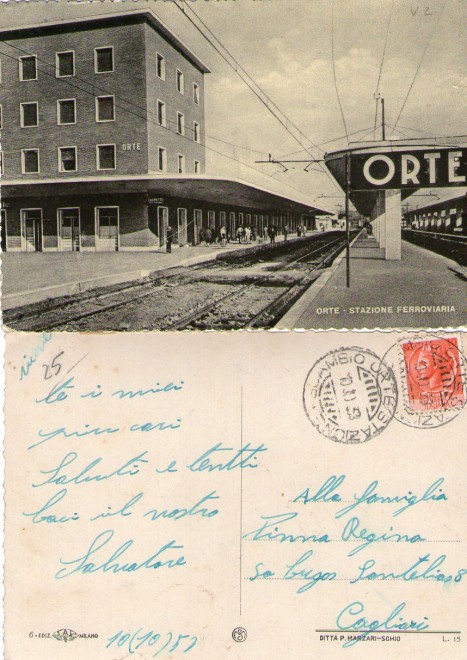 V2
ORTE
ORTE
ORTE - STAZIONE FERROVIARIA
25
te i miei
più cari
Saluti e tentti
baci il nostro
Salvatore
10(10)57
SCAMBIO ORTE STAZIONE
Alla famiglia
Pinna Regina
Santelia 8
Cagliari
6 - EDIZ. MILANO
DITTA P. MANZARI - SOHIO
L. 15